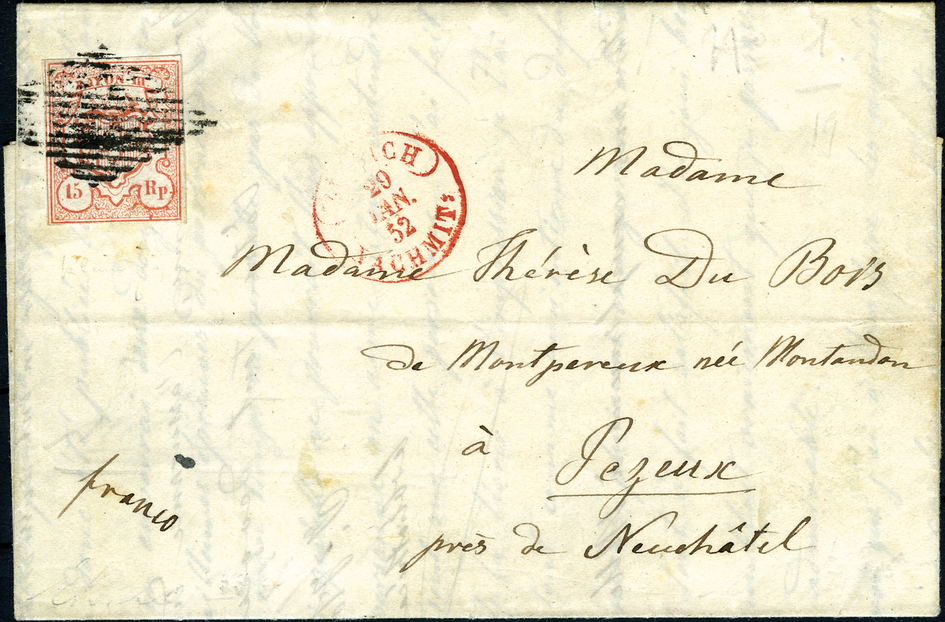 15 Rp.
20
JAN.
52
NACHMITS
Madame
Madame Thérèse Du Bois
de Montpereux née Montandon
à Pezeux
près de Neuchâtel
franco